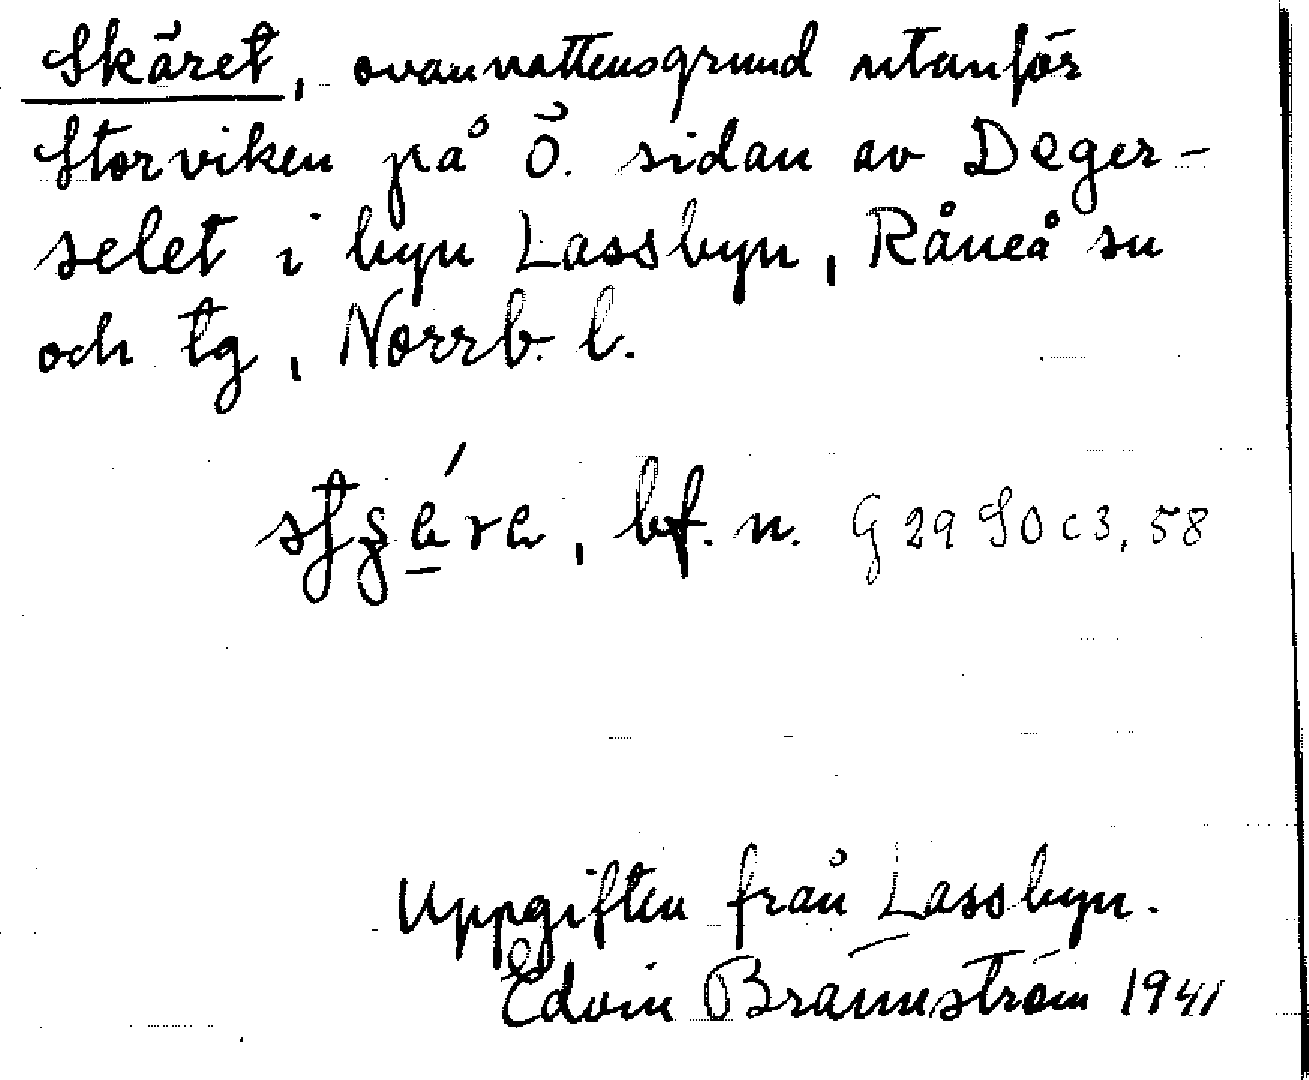 Skäret, ovanvattensgrund utanför
Storviken på Ö. sidan av Deger-
selet i byn Lassbyn, Råneå sn
och tg, Norrb. l.
bf. n. G 29 SO c3, 58
Uppgiften från Lassbyn.
Edvin Brännström 1941